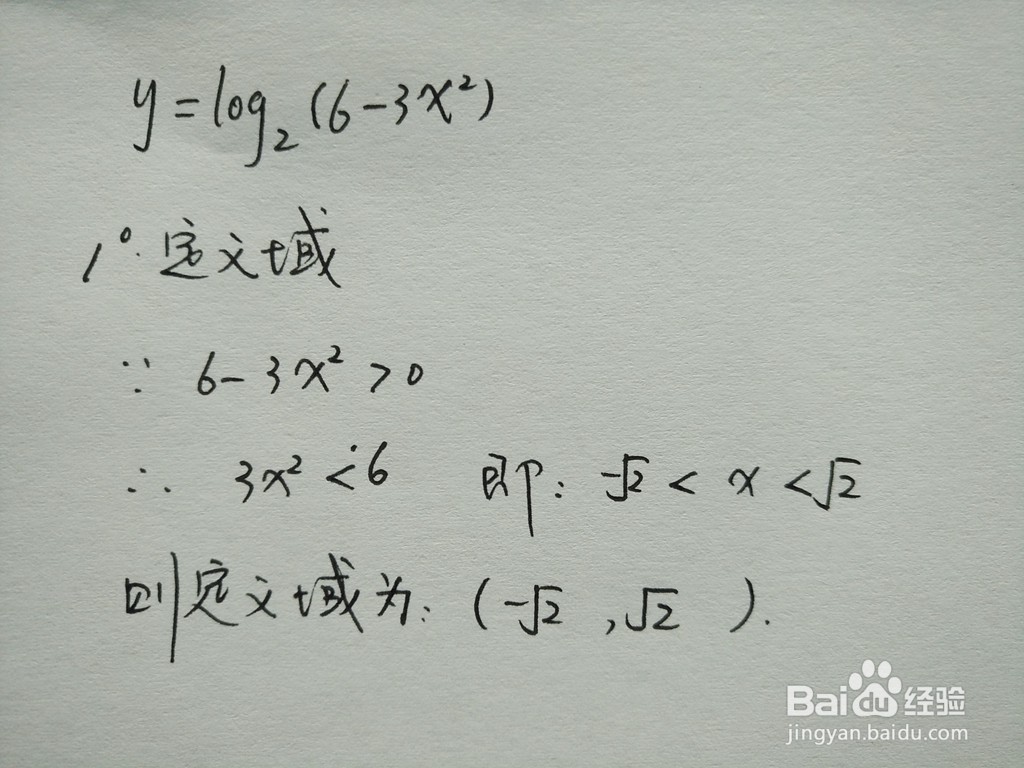 y=log₂(6-3x²)
1°.定义域
∵ 6-3x²>0
∴ 3x²<6 即: -√2 < x <√2
则定义域为: (-√2 ,√2 ).
Baidu经验
jingyan.baidu.com